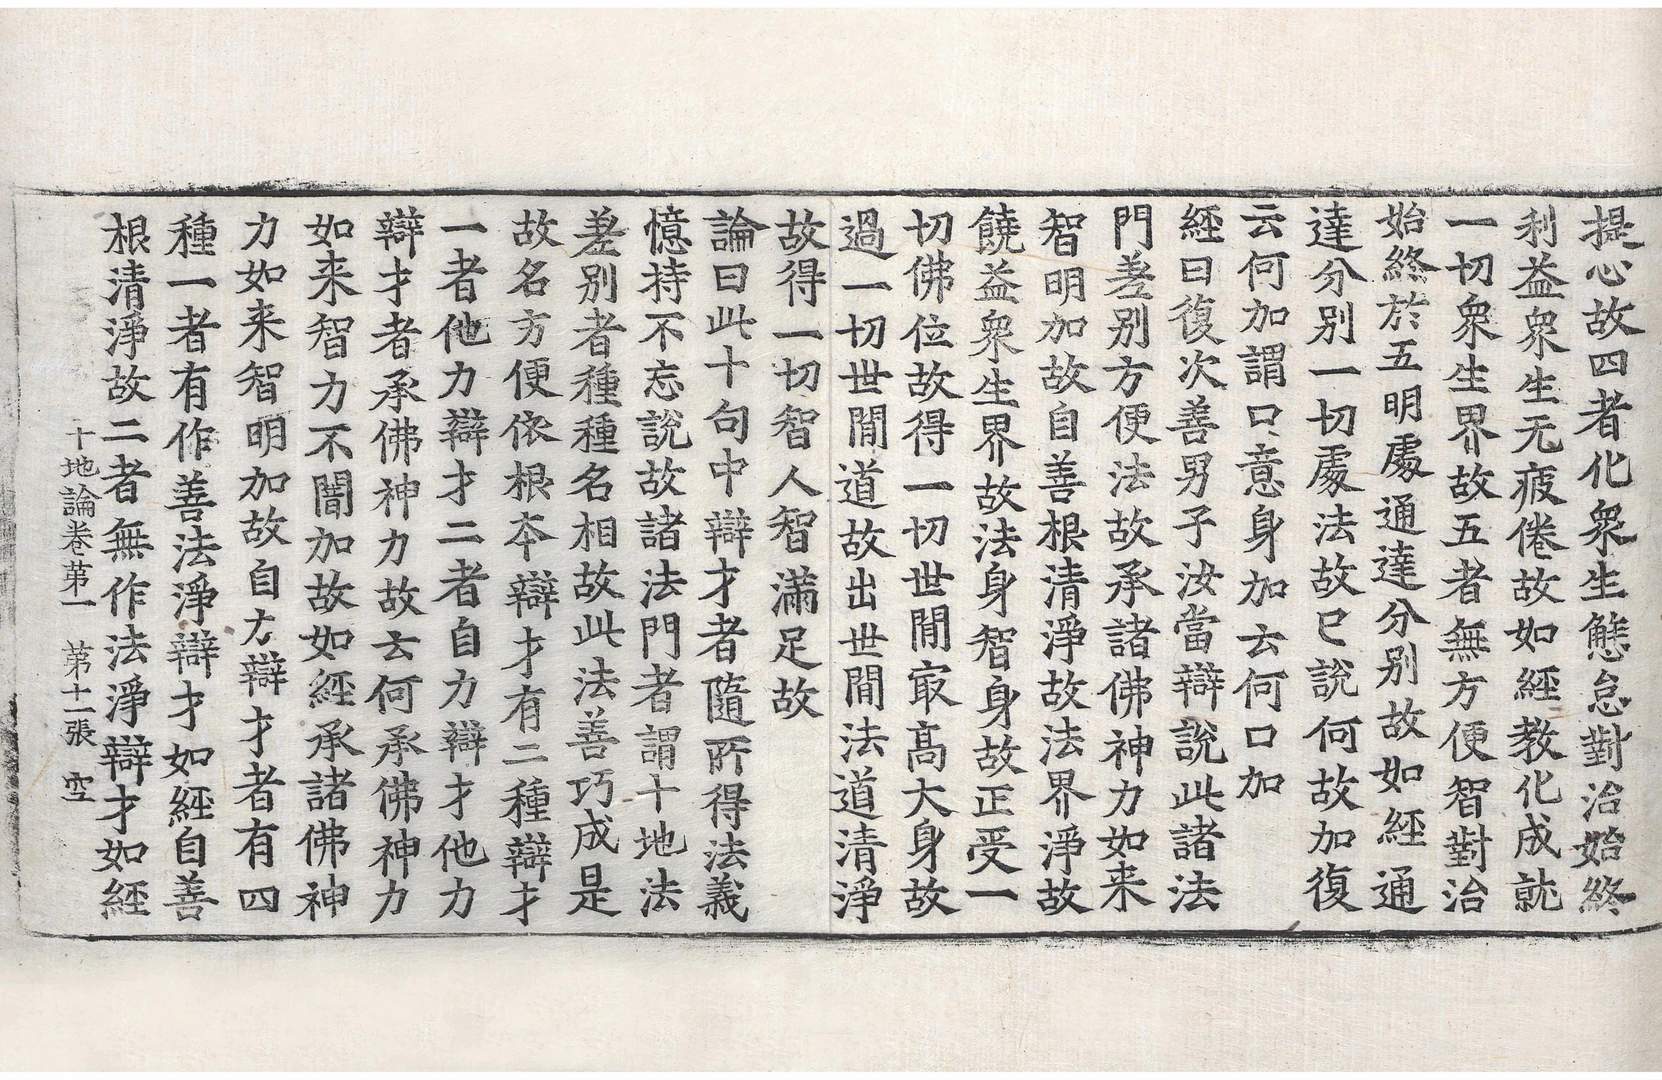 提心故四者化衆生懈怠對治始終
利益衆生无疲倦故如經教化成就
一切衆生界故五者無方便智對治
始終於五明處通達分别故如經通
達分别一切處法故已說何故加復
云何加謂口意身加云何口加
經曰復次善男子汝當辯說此諸法
門差别方便法故承諸佛神力如来
智明加故自善根清淨故法界淨故
饒益衆生界故法身智身故正受一
切佛位故得一切世閒㝡髙大身故
過一切世閒道故出世閒法道清淨
故得一切智人智滿足故
論曰此十句中辯才者隨所得法義
憶持不忘說故諸法門者謂十地法
差别者種種名相故此法善巧成是
故名方便依根本辯才有二種辯才
一者他力辯才二者自力辯才他力
辯才者承佛神力故云何承佛神力
如来智力不闇加故如經承諸佛神
力如来智明加故自力辯才者有四
種一者有作善法淨辯才如經自善
根清淨故二者無作法淨辯才如經
十地論卷第一　第十二張　空